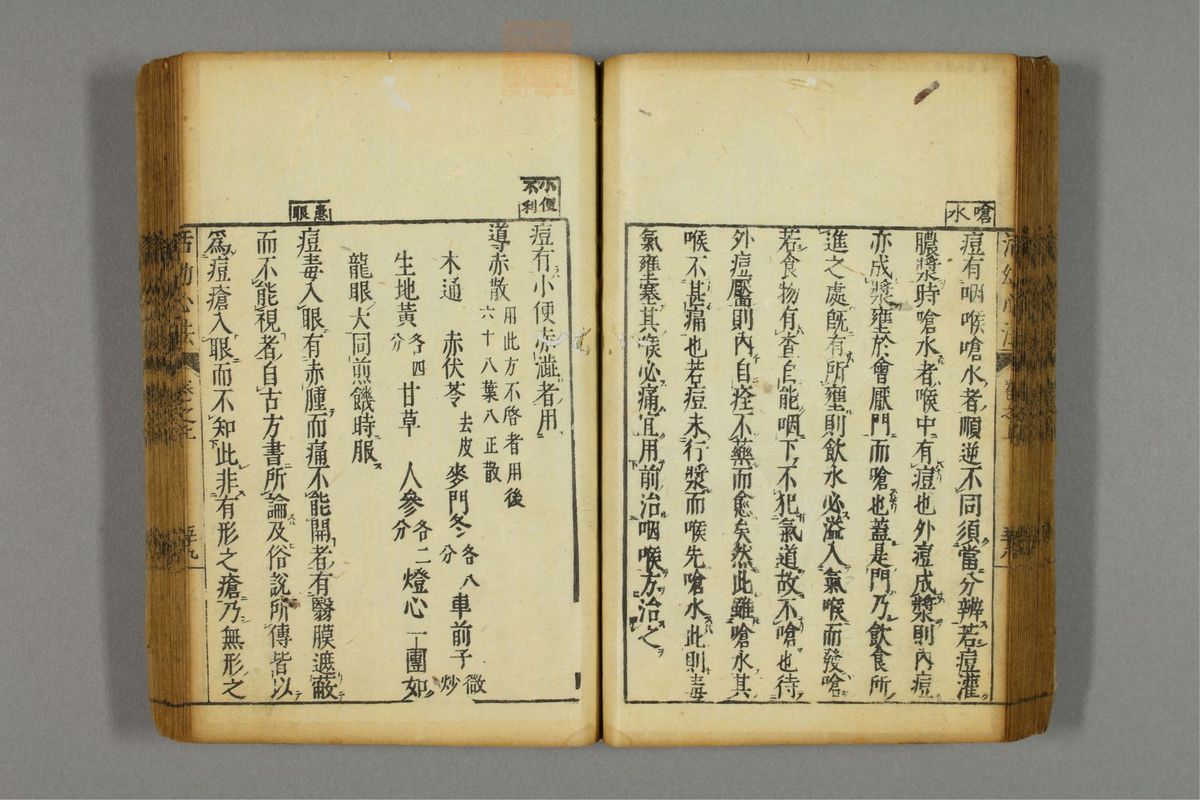 嗆水
痘有咽喉嗆水者順逆不同須當分辨若痘灌
膿漿時嗆水者喉中有痘也外痘成漿則內痘
亦成漿壅於會厭門而嗆也蓋是門乃飲食所
進之處既有所壅則飲水必溢入氣喉而發嗆
若食物有查自能咽下不犯氣道故不嗆也待
外痘靨則內自痊不藥而愈矣然此雖嗆水其
喉不甚痛也若痘未行漿而喉先嗆水此則毒
氣壅塞其喉必痛宜用前治咽喉方治之
小便不利
痘有小便赤澁者用
導赤散用此方不啓者用後
六十八葉八正散
木通 赤伏苓去皮 麥門冬各八分 車前子微炒
生地黃各四分 甘草 人參各二分 燈心一團如
龍眼大同煎饑時服
患眼
痘毒入眼有赤腫而痛不能開者有翳膜遮蔽
而不能視者自古方書所論及俗說所傳皆以
爲痘瘡入眼而不知此非有形之瘡乃無形之
活幼心法